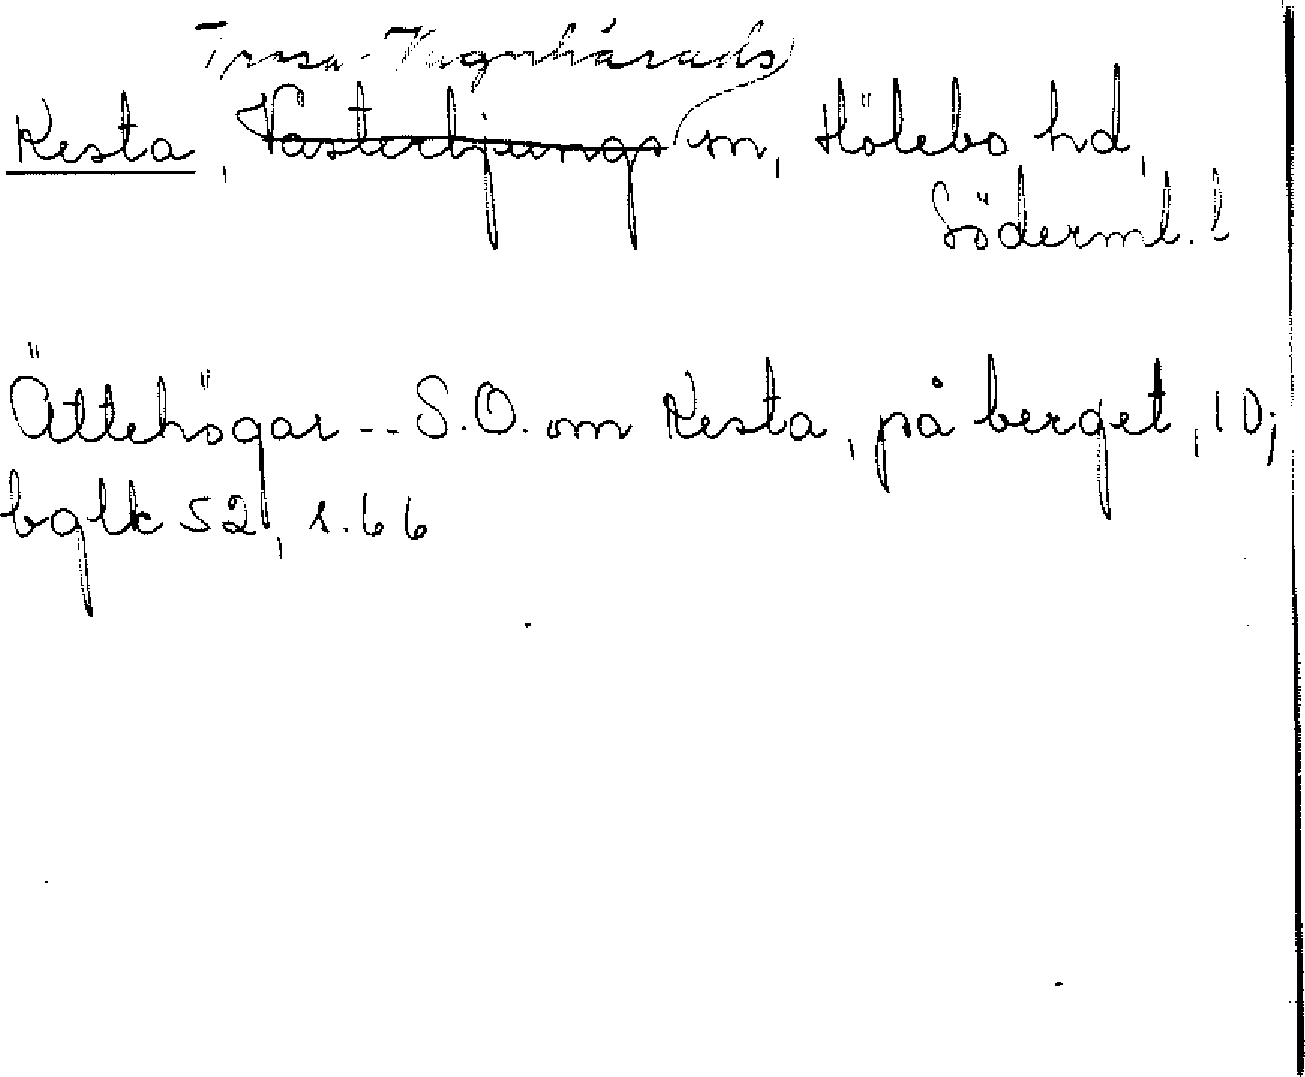 Trosa-Vagnhärads
Kesta, Västerljungs sn, Hölebo hd,
Söderml. l
Ättehögar -- S.O. om Kesta, på berget, 10;
bglk 52, s. 66